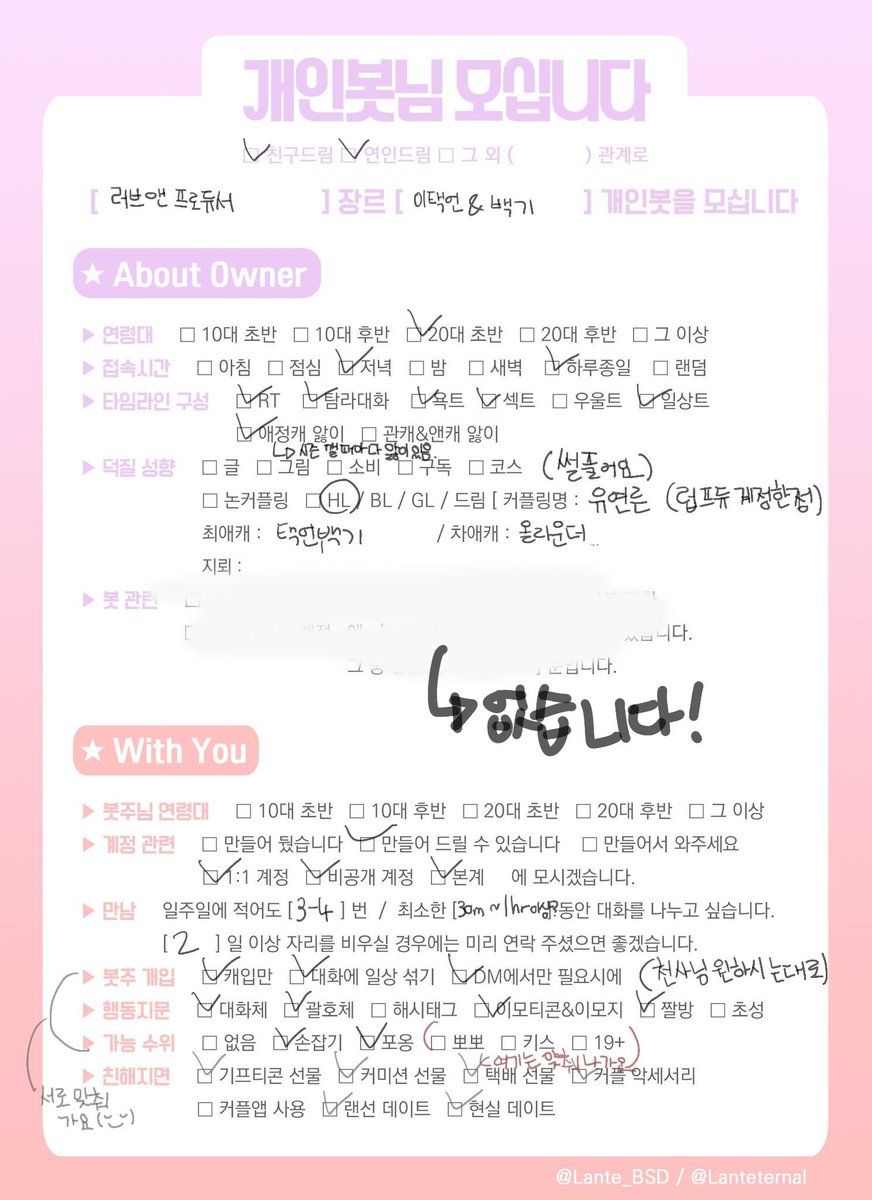 개인봇님 모십니다
☑ 친구드림 ☑ 연인드림 □ 그 외 ( ) 관계로
[ 러브앤 프로듀서 ] 장르 [ 이택언 & 백기 ] 개인봇을 모십니다
★ About Owner
▶ 연령대 □ 10대 초반 □ 10대 후반 ☑ 20대 초반 □ 20대 후반 □ 그 이상
▶ 접속시간 □ 아침 □ 점심 ☑ 저녁 □ 밤 □ 새벽 ☑ 하루종일 □ 랜덤
▶ 타임라인 구성 ☑ RT ☑ 탐라대화 ☑ 욕트 ☑ 섹트 □ 우울트 ☑ 일상트
☑ 애정캐 앓이 □ 관캐&앤캐 앓이
↳ 시즌 깰 때마다 앓이 있음.
▶ 덕질 성향 □ 글 □ 그림 □ 소비 □ 구독 □ 코스 (썰풀어요)
□ 논커플링 □ HL / BL / GL / 드림 [ 커플링명 : 유연른 (럽프듀 계정한정)
최애캐 : 택언백기 / 차애캐 : 올라운더
지뢰 :
▶ 봇 관련 □
습니다.
] 분입니다.
↳ 없습니다!
★ With You
▶ 봇주님 연령대 □ 10대 초반 □ 10대 후반 □ 20대 초반 □ 20대 후반 □ 그 이상
▶ 계정 관련 □ 만들어 뒀습니다 ☑ 만들어 드릴 수 있습니다 □ 만들어서 와주세요
☑ 1:1 계정 ☑ 비공개 계정 ☑ 본계 에 모시겠습니다.
▶ 만남 일주일에 적어도 [ 3-4 ] 번 / 최소한 [ 30m~1hr이상? 동안 대화를 나누고 싶습니다.
[ 2 ] 일 이상 자리를 비우실 경우에는 미리 연락 주셨으면 좋겠습니다.
▶ 봇주 개입 ☑ 캐입만 ☑ 대화에 일상 섞기 ☑ DM에서만 필요시에 (천사님 원하시는대로)
▶ 행동지문 ☑ 대화체 ☑ 괄호체 □ 해시태그 ☑ 이모티콘&이모지 ☑ 짤방 □ 초성
▶ 가능 수위 □ 없음 ☑ 손잡기 ☑ 포옹 ( □ 뽀뽀 □ 키스 □ 19+ )
<여기는 맞춰 나가요
▶ 친해지면 ☑ 기프티콘 선물 ☑ 커미션 선물 ☑ 택배 선물 ☑ 커플 악세서리
□ 커플앱 사용 ☑ 랜선 데이트 ☑ 현실 데이트
서로 맞춰
가요(:-))
@Lante_BSD / @Lanteternal